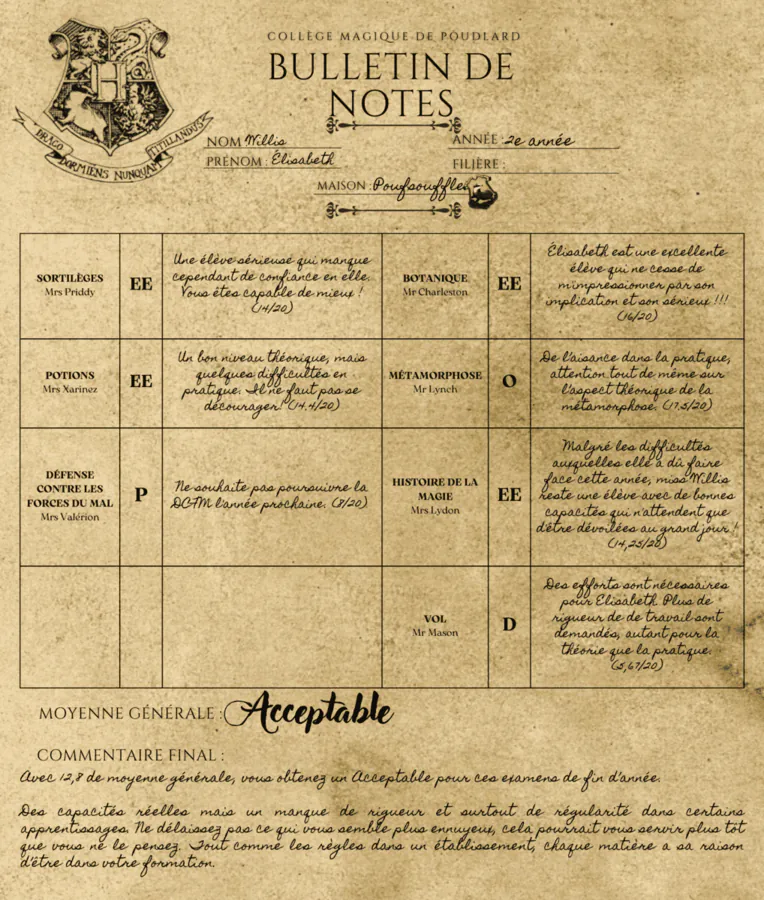 COLLÈGE MAGIQUE DE POUDLARD
BULLETIN DE
NOTES
DRACO DORMIENS NUNQUAM TITILLANDUS
H
NOM Willis
ANNÉE : 2e année
PRÉNOM : Élisabeth
FILIÈRE :
MAISON : Poufsouffle
SORTILÈGES
Mrs Priddy
EE
Une élève sérieuse qui manque
cependant de confiance en elle.
Vous êtes capable de mieux !
(14/20)
BOTANIQUE
Mr Charleston
EE
Élisabeth est une excellente
élève qui ne cesse de
m'impressionner par son
implication et son sérieux !!!
(16/20)
POTIONS
Mrs Xarinez
EE
Un bon niveau théorique, mais
quelques difficultés en
pratique. Il ne faut pas se
décourager! (14.4/20)
MÉTAMORPHOSE
Mr Lynch
O
De l'aisance dans la pratique,
attention tout de même sur
l'aspect théorique de la
métamorphose. (17.5/20)
DÉFENSE
CONTRE LES
FORCES DU MAL
Mrs Valérion
P
Ne souhaite pas poursuivre la
DCFM l'année prochaine. (8/20)
HISTOIRE DE LA
MAGIE
Mrs Lydon
EE
Malgré les difficultés
auxquelles elle a dû faire
face cette année, miss Willis
reste une élève avec de bonnes
capacités qui n'attendent que
d'être dévoilées au grand jour !
(14,25/20)
VOL
Mr Mason
D
Des efforts sont nécessaires
pour Elisabeth. Plus de
rigueur de de travail sont
demandés, autant pour la
théorie que la pratique.
(5,67/20)
MOYENNE GÉNÉRALE : Acceptable
COMMENTAIRE FINAL :
Avec 12,8 de moyenne générale, vous obtenez un Acceptable pour ces examens de fin d'année.
Des capacités réelles mais un manque de rigueur et surtout de régularité dans certains
apprentissages. Ne délaissez pas ce qui vous semble plus ennuyeux, cela pourrait vous servir plus tôt
que vous ne le pensez. Tout comme les règles dans un établissement, chaque matière a sa raison
d'être dans votre formation.